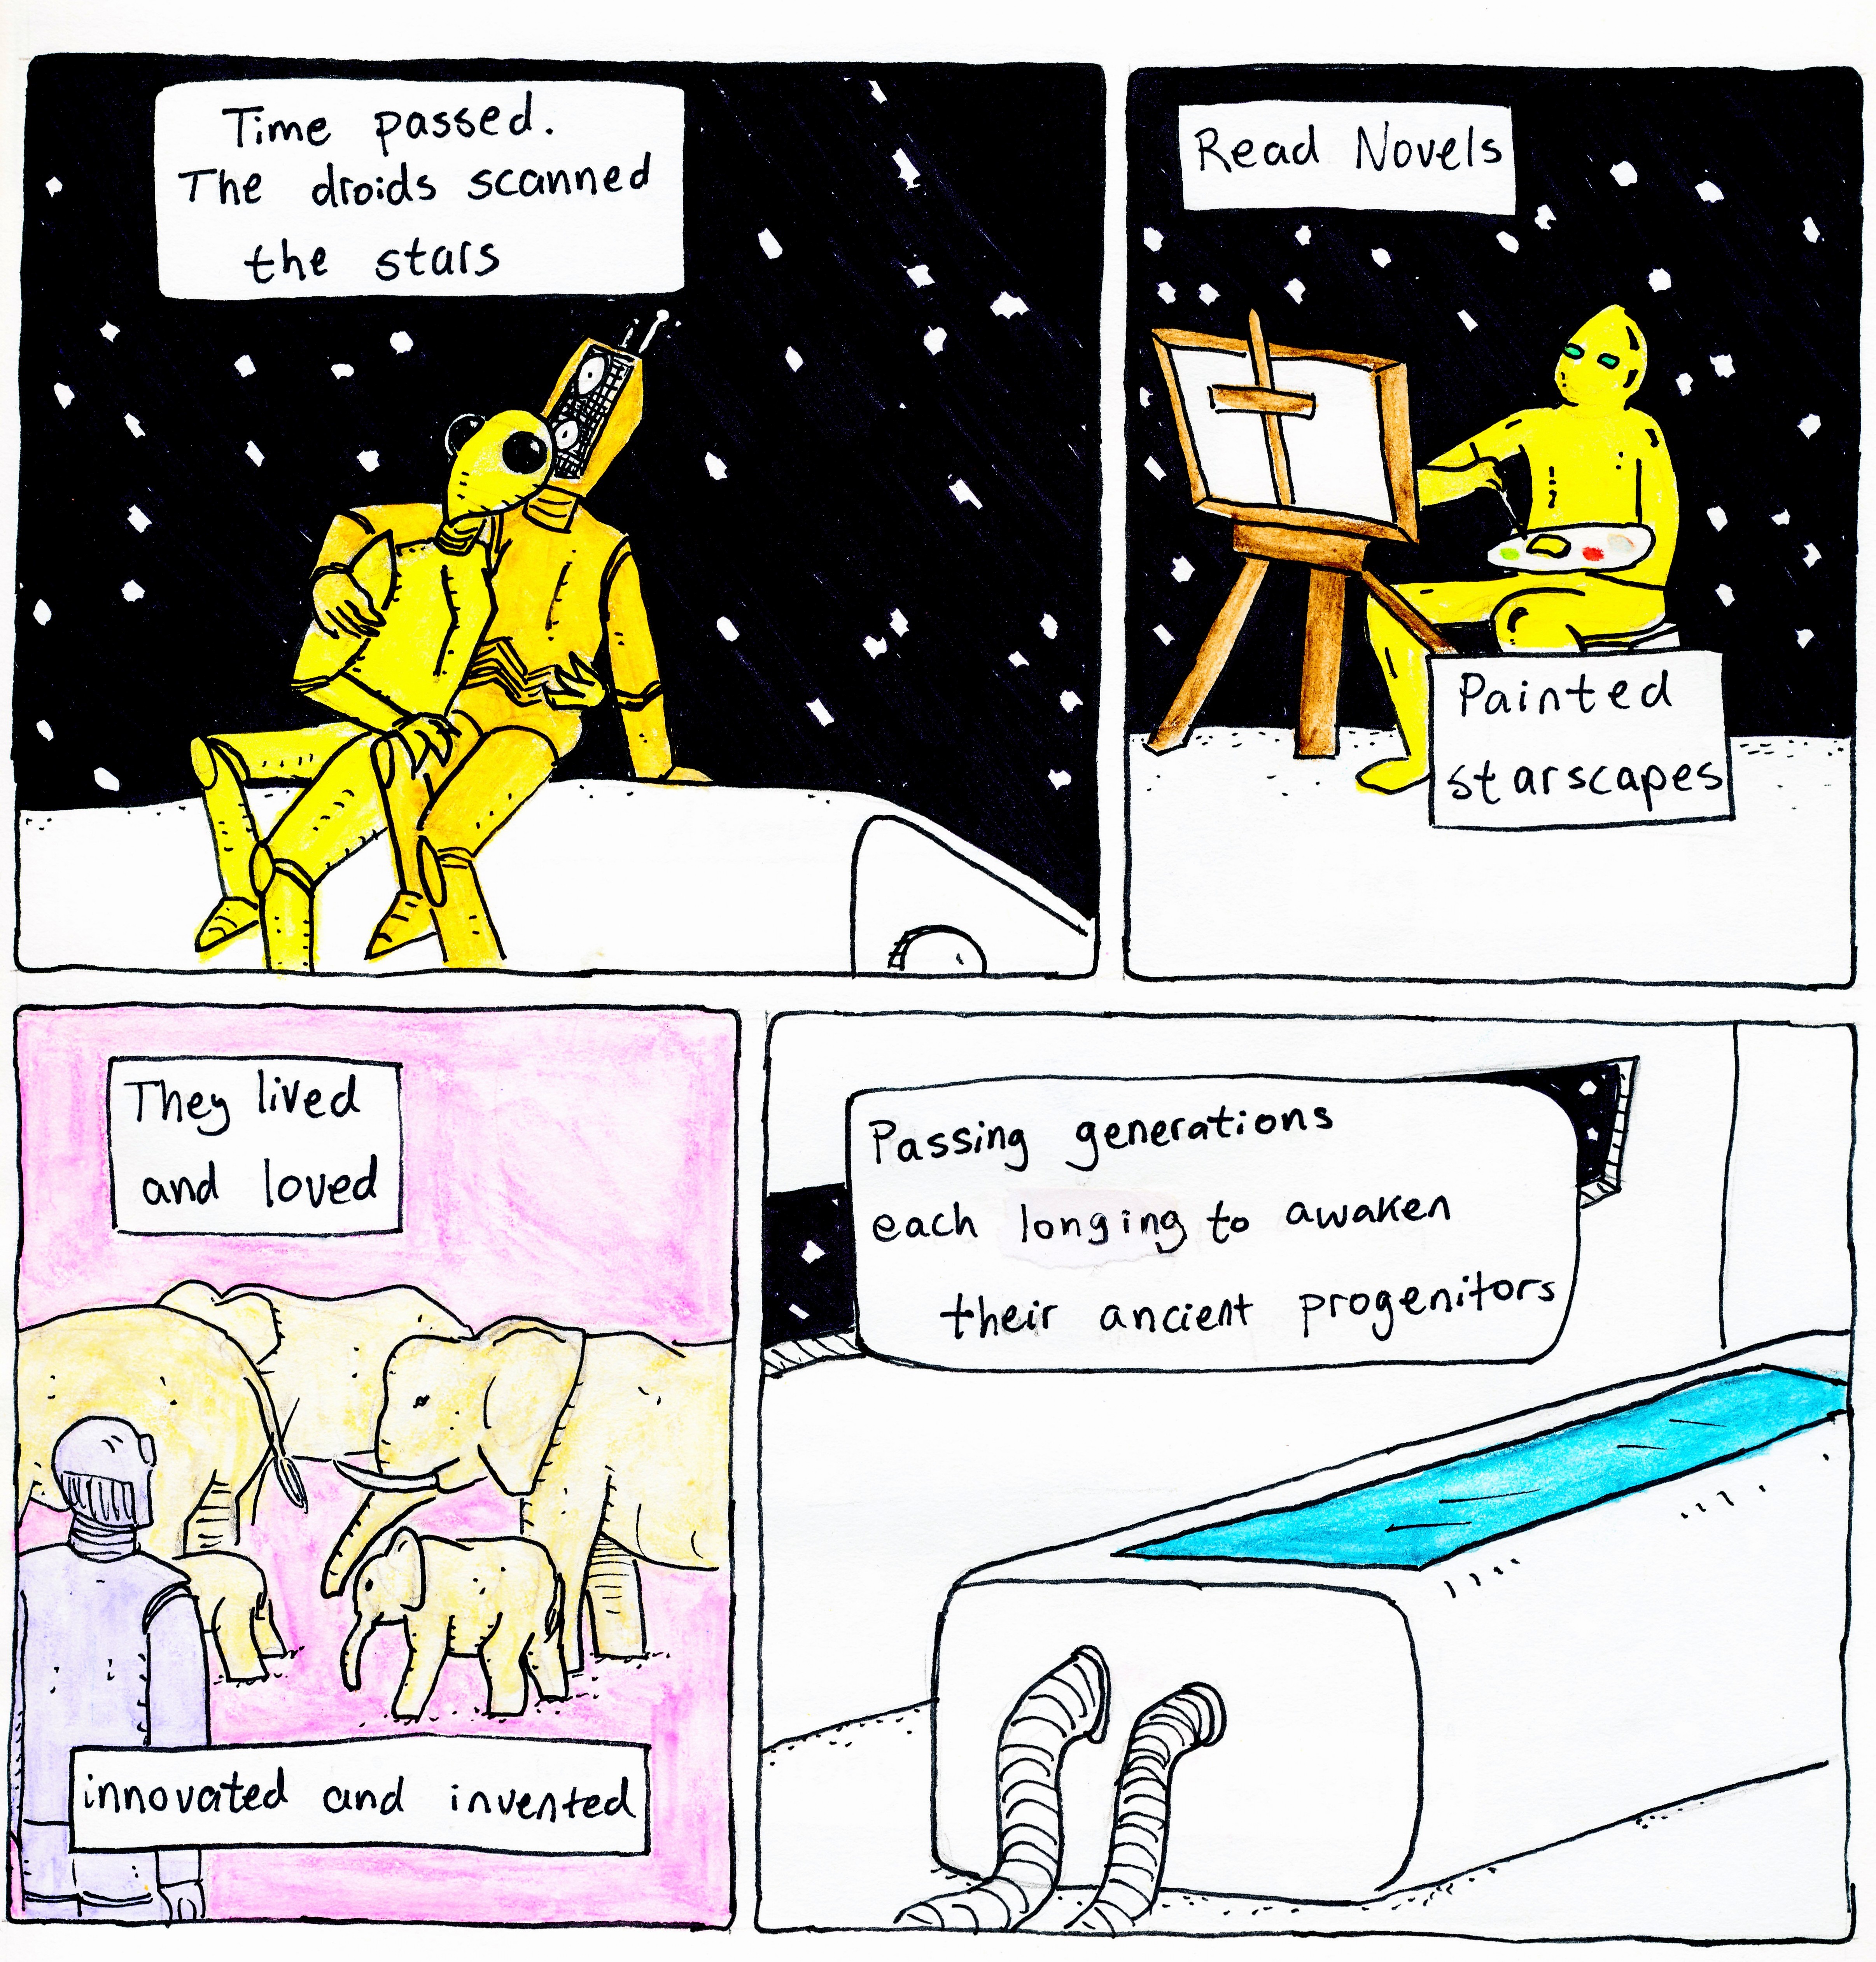 Time passed.
The droids scanned
the stars
Read Novels
Painted
starscapes
They lived
and loved
innovated and invented
Passing generations
each longing to awaken
their ancient progenitors